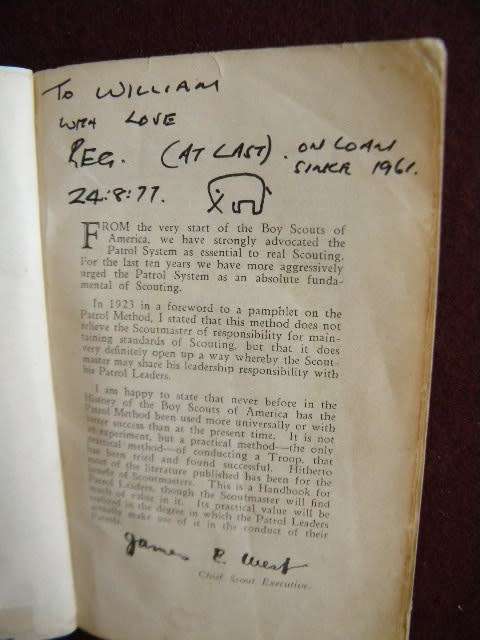 TO WILLIAM
WITH LOVE
REG. (AT LAST). ON LOAN
SINCE 1961.
24:8:77.
FROM the very start of the Boy Scouts of
America, we have strongly advocated the
Patrol System as essential to real Scouting.
For the last ten years we have more aggressively
urged the Patrol System as an absolute funda-
mental of Scouting.
In 1923 in a foreword to a pamphlet on the
Patrol Method, I stated that this method does not
relieve the Scoutmaster of responsibility for main-
taining standards of Scouting, but that it does
very definitely open up a way whereby the Scout-
master may share his leadership responsibility with
his Patrol Leaders.
I am happy to state that never before in the
History of the Boy Scouts of America has the
Patrol Method been used more universally or with
better success than at the present time. It is not
an experiment, but a practical method—the only
practical method—of conducting a Troop, that
has been tried and found successful. Hitherto
most of the literature published has been for the
benefit of Scoutmasters. This is a Handbook for
Patrol Leaders, though the Scoutmaster will find
much of value in it. Its practical value will be
realized in the degree in which the Patrol Leaders
actually make use of it in the conduct of their
Patrols.
James E. West
Chief Scout Executive.